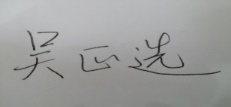 吴正选